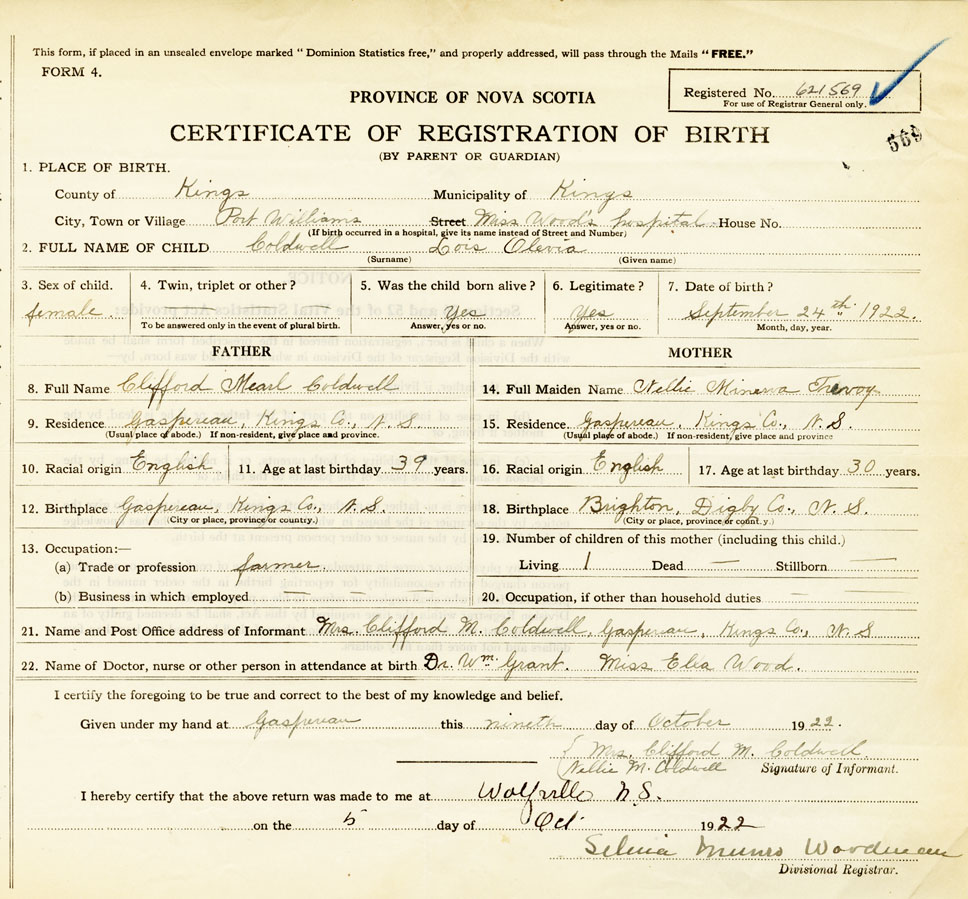 This form, if placed in an unsealed envelope marked "Dominion Statistics free," and properly addressed, will pass through the Mails "FREE."
FORM 4.
Registered No. 621569
For use of Registrar General only.
PROVINCE OF NOVA SCOTIA
569
CERTIFICATE OF REGISTRATION OF BIRTH
(BY PARENT OR GUARDIAN)
1. PLACE OF BIRTH.
County of Kings Municipality of Kings
City, Town or Village Port Williams Street Miss Woods hospital House No.
(If birth occurred in a hospital, give its name instead of Street and Number)
2. FULL NAME OF CHILD Coldwell Lois Olevia
(Surname) (Given name)
3. Sex of child. 4. Twin, triplet or other? 5. Was the child born alive? 6. Legitimate? 7. Date of birth?
female. Yes Yes September 24th 1922.
To be answered only in the event of plural birth. Answer, yes or no. Answer, yes or no. Month, day, year.
FATHER MOTHER
8. Full Name Clifford Mearl Coldwell 14. Full Maiden Name Nellie Minerva Trevoy
9. Residence Gaspereau, Kings Co., N. S. 15. Residence Gaspereau, Kings Co., N. S.
(Usual place of abode.) If non-resident, give place and province. (Usual place of abode.) If non-resident, give place and province
10. Racial origin English 11. Age at last birthday 39 years. 16. Racial origin English 17. Age at last birthday 30 years.
12. Birthplace Gaspereau, Kings Co., N. S. 18. Birthplace Brighton, Digby Co., N. S.
(City or place, province or country.) (City or place, province or country.)
13. Occupation:— 19. Number of children of this mother (including this child.)
(a) Trade or profession farmer. Living 1 Dead — Stillborn —
(b) Business in which employed — — — — 20. Occupation, if other than household duties — —
21. Name and Post Office address of Informant Mrs. Clifford M. Coldwell, Gaspereau, Kings Co., N. S
22. Name of Doctor, nurse or other person in attendance at birth Dr. Wm. Grant. Miss Elia Wood.
I certify the foregoing to be true and correct to the best of my knowledge and belief.
Given under my hand at Gaspereau this nineth day of October 1922.
Mrs. Clifford M. Coldwell
Nellie M. Coldwell Signature of Informant.
I hereby certify that the above return was made to me at Wolfville N.S.
on the 5 day of Oct 1922
Munro Woodman
Divisional Registrar.